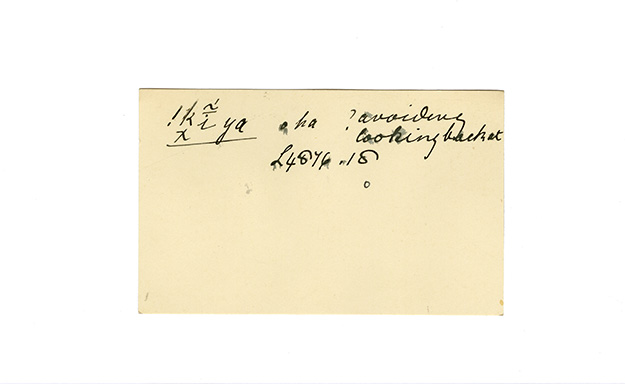 !kĩ ya ha ? avoiding
looking back at
L4876.18